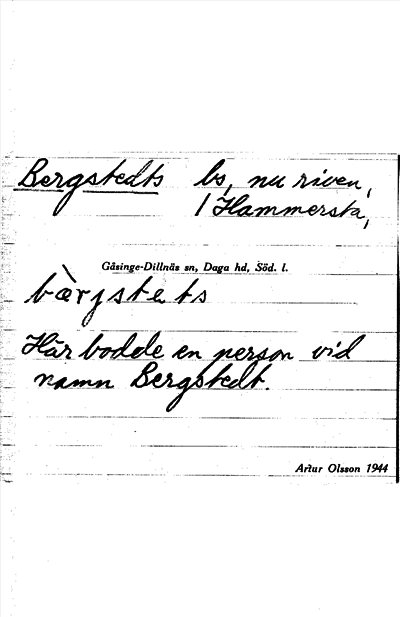 Bergstedts bs, nu riven,
1 Hammersta,
Gåsinge-Dillnäs sn, Daga hd, Söd. l.
bæ̀rjstets
Här bodde en person vid
namn Bergstedt.
Artur Olsson 1944